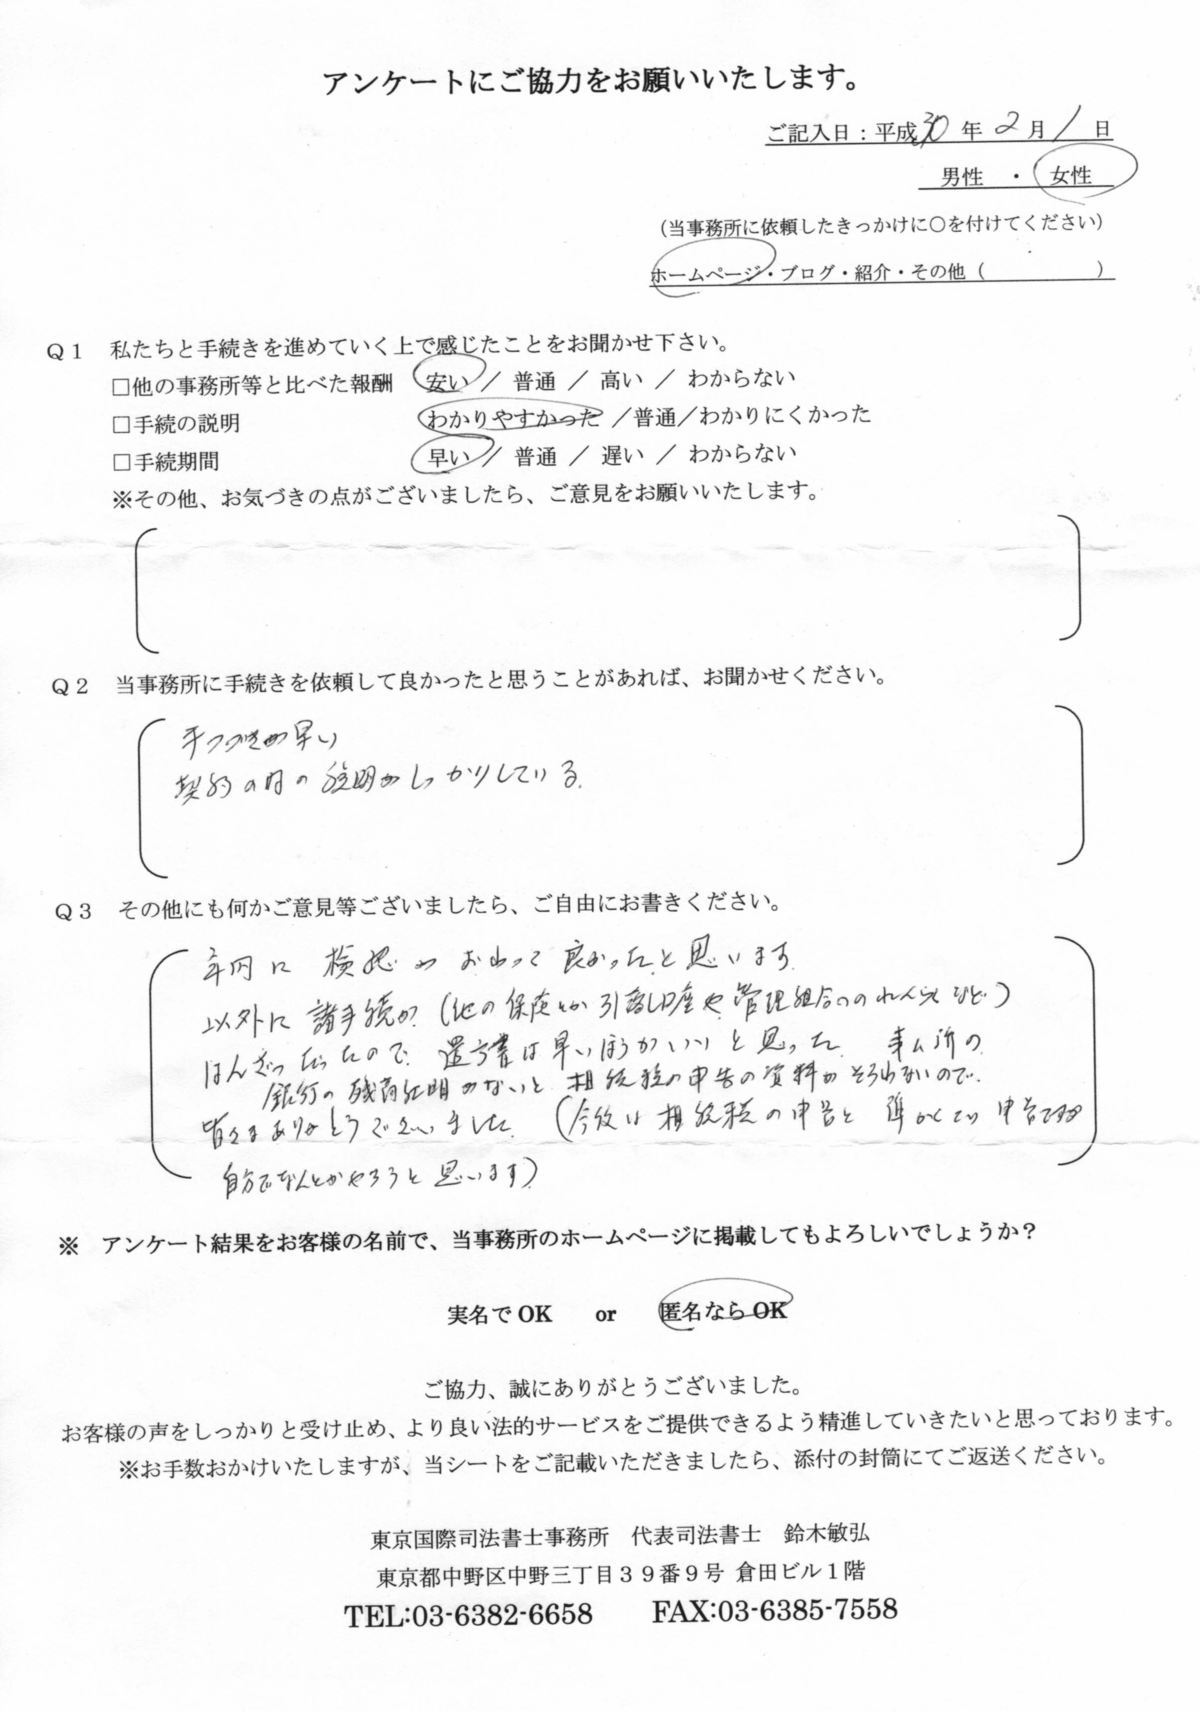 アンケートにご協力をお願いいたします。
ご記入日：平成30年2月1日
男性 ・ 女性
（当事務所に依頼したきっかけに〇を付けてください）
ホームページ・ブログ・紹介・その他（ ）
Q１ 私たちと手続きを進めていく上で感じたことをお聞かせ下さい。
□他の事務所等と比べた報酬 安い ／ 普通 ／ 高い ／ わからない
□手続の説明 わかりやすかった ／普通／わかりにくかった
□手続期間 早い ／ 普通 ／ 遅い ／ わからない
※その他、お気づきの点がございましたら、ご意見をお願いいたします。
Q２ 当事務所に手続きを依頼して良かったと思うことがあれば、お聞かせください。
手つづきが早い
契約の時の説明がしっかりしている。
Q３ その他にも何かご意見等ございましたら、ご自由にお書きください。
年内に検認がおわって良かったと思います。
以外に諸手続が（他の保険とか引落し口座や管理組合へのれんらくなど）
はんざつだったので、遺言書は早いほうがいいと思った。
銀行の残高証明がないと相続税の申告の資料がそろわないので、
皆さまありがとうございました。（今後は相続税の申告と準かくてい申告ですが
自分でなんとかやろうと思います）
※ アンケート結果をお客様の名前で、当事務所のホームページに掲載してもよろしいでしょうか？
実名でOK or 匿名ならOK
ご協力、誠にありがとうございました。
お客様の声をしっかりと受け止め、より良い法的サービスをご提供できるよう精進していきたいと思っております。
※お手数おかけいたしますが、当シートをご記載いただきましたら、添付の封筒にてご返送ください。
東京国際司法書士事務所 代表司法書士 鈴木敏弘
東京都中野区中野三丁目３９番９号 倉田ビル１階
TEL:03-6382-6658 FAX:03-6385-7558